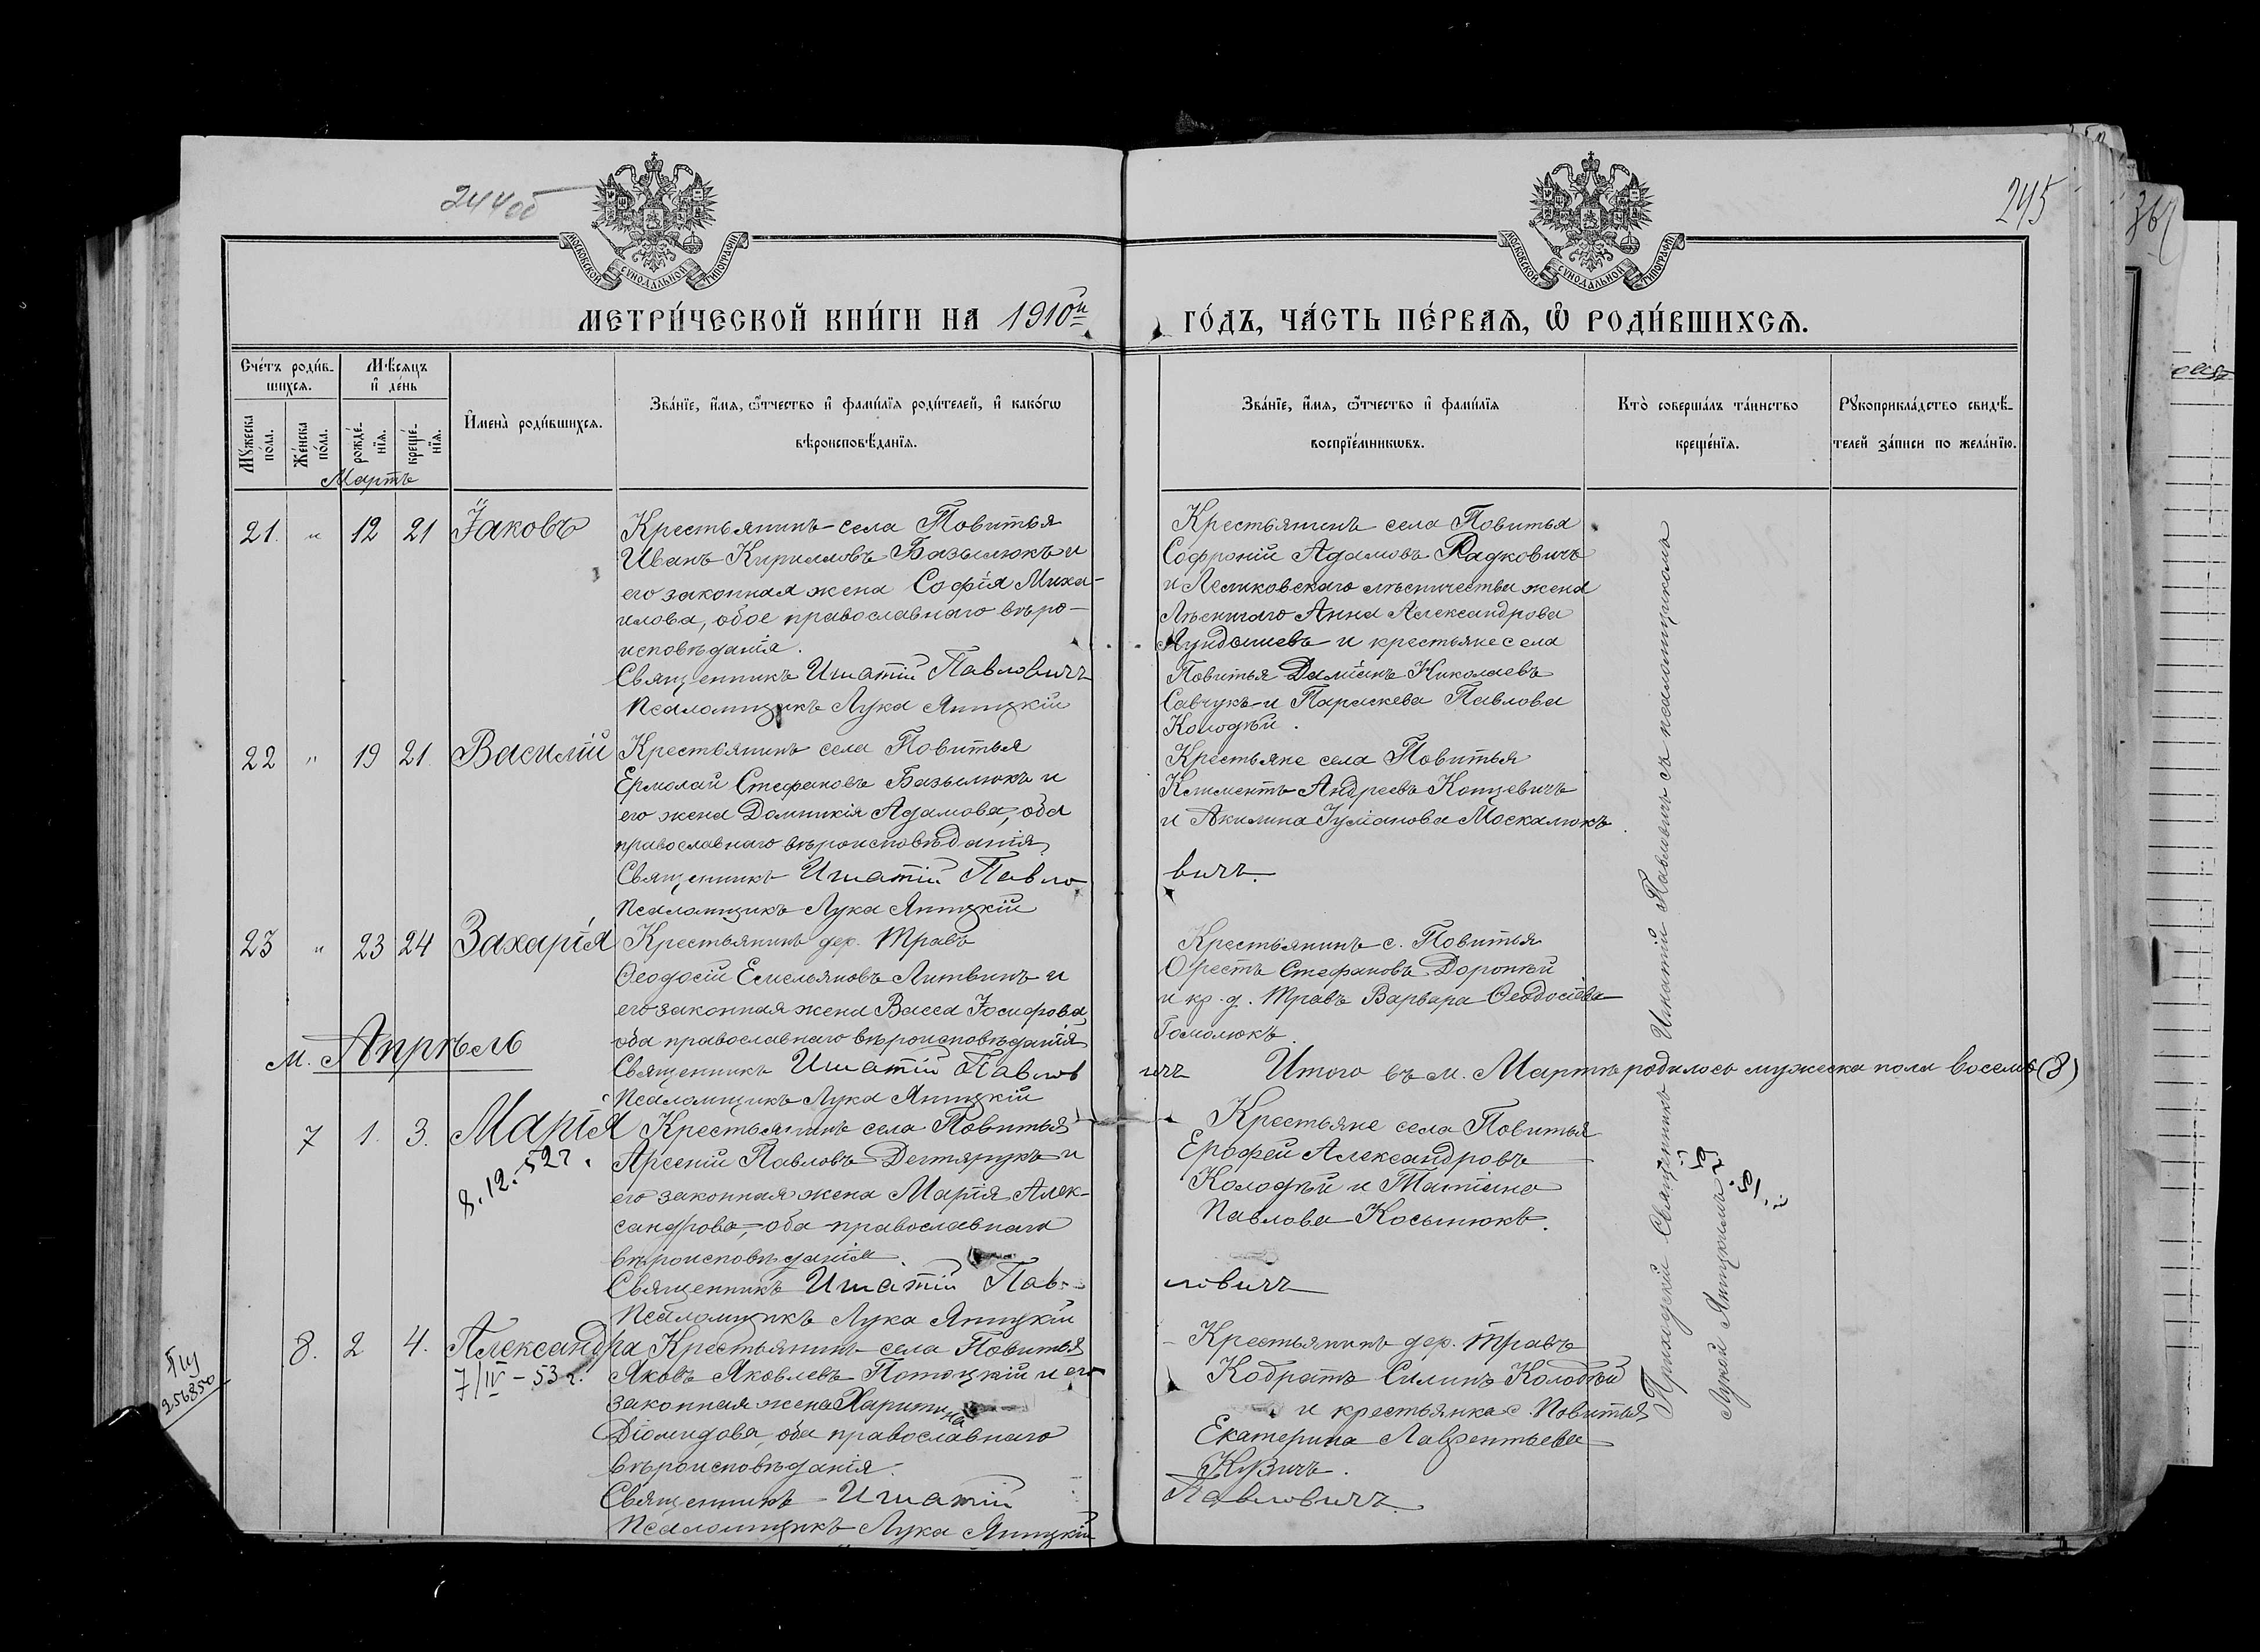 244об
245
МОСКОВСКОЙ СУНОДАЛЬНОЙ ТИПОГРАФІИ
МОСКОВСКОЙ СУНОДАЛЬНОЙ ТИПОГРАФІИ
МЕТРИ́ЧЕСКОЙ КНИ́ГИ НА 1910й
ГО́ДЪ, ЧА́СТЬ ПЕ́РВАѦ, Ѡ РОДИ́ВШИХСѦ.
Сче́тъ роди́в-
шихсѧ.
Мѣ́сѧцъ
и де́нь
Мꙋ́жеска по́ла.
Же́нска по́ла.
рожде́-
нїѧ.
креще́-
нїѧ.
Имена̀ роди́вшихсѧ.
Зва́нїе, и́мѧ, ѻ́тчество и фами́лїѧ роди́телей, и како́гѡ
вѣроисповѣ́данїѧ.
Зва́нїе, и́мѧ, ѻ́тчество и фами́лїѧ
воспрїе́мникѡвъ.
Кто̀ соверша́лъ та́инство
креще́нїѧ.
Рꙋкоприкла́дство свидѣ́-
телей за́писи по жела́нїю.
Мартъ
21. " 12 21 Іаковъ
Крестьянинъ села Повитья
Иванъ Кирилловъ Базылюкъ и
его законная жена Софія Миха-
илова, обое православнаго вѣро-
исповѣданія.
Священникъ Игнатій Павловичъ
Псаломщикъ Лука Япицкій
Крестьянинъ села Повитья
Софроній Адамовъ Радковичъ
и лѣсничества жена
Анна Александрова
и крестьяне села
Повитья Даміанъ Николаевъ
Савчукъ и Параскева Павлова
Колодѣй.
22 " 19 21. Василій
Крестьянинъ села Повитья
Ермолай Стефановъ Базылюкъ и
его жена Домникія Адамова, оба
православнаго вѣроисповѣданія.
Священникъ Игнатій Павло
вичъ.
Псаломщикъ Лука Япицкій
Крестьяне села Повитья
Климентъ Андреевъ Концевичъ
и Акилина Іуліанова Москалюкъ.
23 " 23 24 Захарія
Крестьянинъ дер. Травъ
Ѳеодосій Емельяновъ Литвинъ и
его законная жена Васса Іосифова,
оба православнаго вѣроисповѣданія
Священникъ Игнатій Павлов
ичъ
Псаломщикъ Лука Япицкій
Крестьянинъ с. Повитья
Орестъ Стефановъ Доропѣй
и кр. д. Травъ Варвара Ѳеодосіева
Гомолюкъ.
Итого въ м. Мартѣ родилось мужеска пола восемь (8)
м. Апрѣль
7 1. 3. Марія
8.12.52г.
Крестьянинъ села Повитья
Арсеній Павловъ Дегтярукъ и
его законная жена Марія Алек-
сандрова, оба православнаго
вѣроисповѣданія.
Священникъ Игнатій Пав-
ловичъ
Псаломщикъ Лука Япицкій
Крестьяне села Повитья
Ерофей Александровъ
Колодѣй и Татіана
Павлова Косынюкъ.
8. 2 4. Александра
7/IV-53 г.
Крестьянинъ села Повитья
Яковъ Яковлевъ Потоцкій и его
законная жена Харитина
Діомидова, оба православнаго
вѣроисповѣданія.
Священникъ Игнатій
Павловичъ
Псаломщикъ Лука Япицкій
Крестьянинъ дер. Травъ
Кодратъ Силинъ Колодѣй
и крестьянка с. Повитья
Екатерина Лаврентьева
Кузичъ.
Приходскій Священникъ Игнатій Павловичъ съ псаломщикомъ
Лукой Япицкимъ
256850